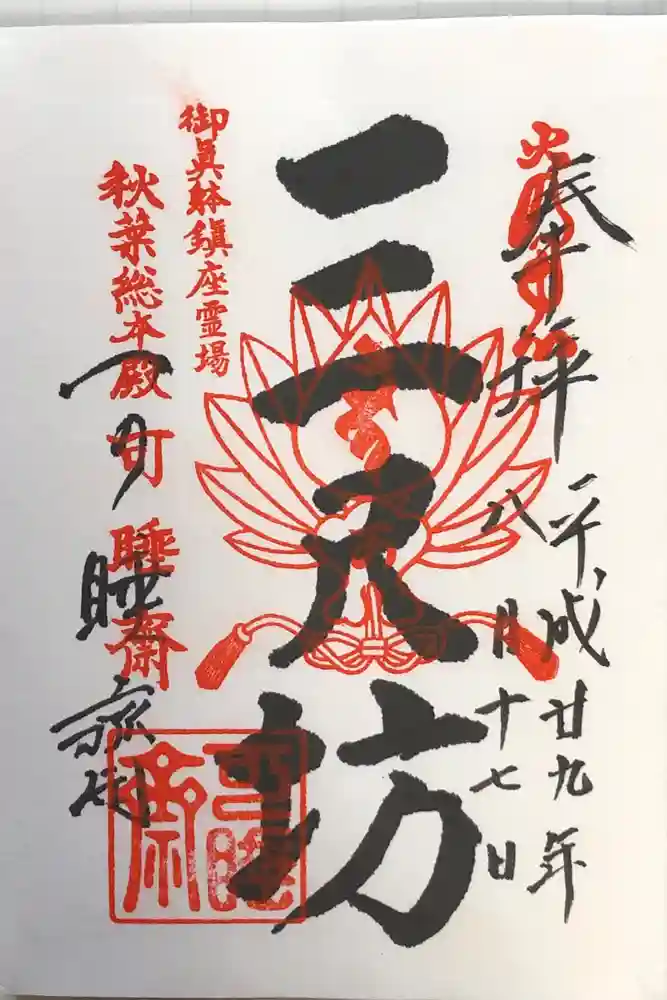 奉拝
平成廿九年
八月十七日
三尺坊
御眞躰鎭座霊場
秋葉総本殿可睡齋
可睡齋